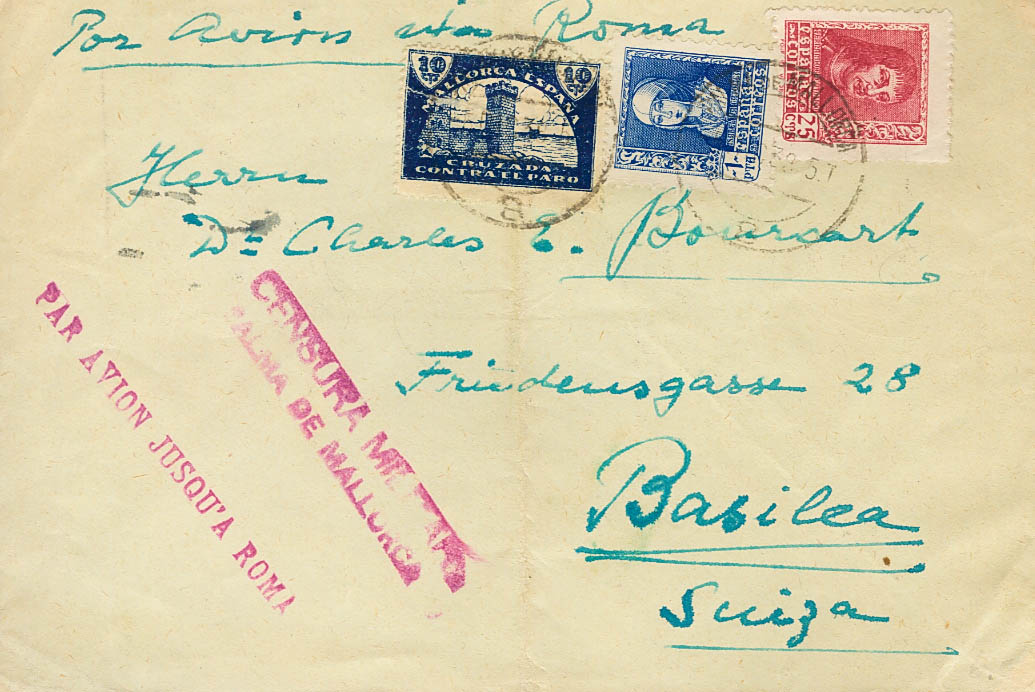 Por Avion via Roma
10 CTS 10 CTS
MALLORCA ESPAÑA
CRUZADA
CONTRA EL PARO
CORREOS
ESPAÑA
1 PTA
ESPAÑA
CORREOS
25 CTS
B
Herrn
Dr Charles E. Bourcart
Friedensgasse 28
Basilea
Suiza
CENSURA MILITAR
PALMA DE MALLORCA
PAR AVION JUSQU'A ROMA